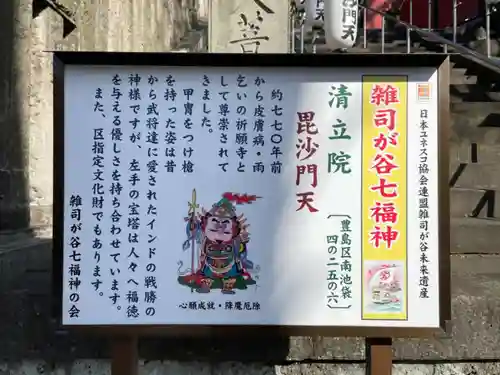 日本ユネスコ協会連盟雑司が谷未来遺産
雑司が谷七福神
清立院
毘沙門天
〔豊島区南池袋
四の二五の六〕
約七七〇年前
から皮膚病・雨
乞いの祈願寺と
して尊崇されて
きました。
甲冑をつけ槍
を持った姿は昔
から武将達に愛されたインドの戦勝の
神様ですが、左手の宝塔は人々へ福徳
を与える優しさを持ち合わせています。
また、区指定文化財でもあります。
雑司が谷七福神の会
心願成就・降魔厄除
沙門天